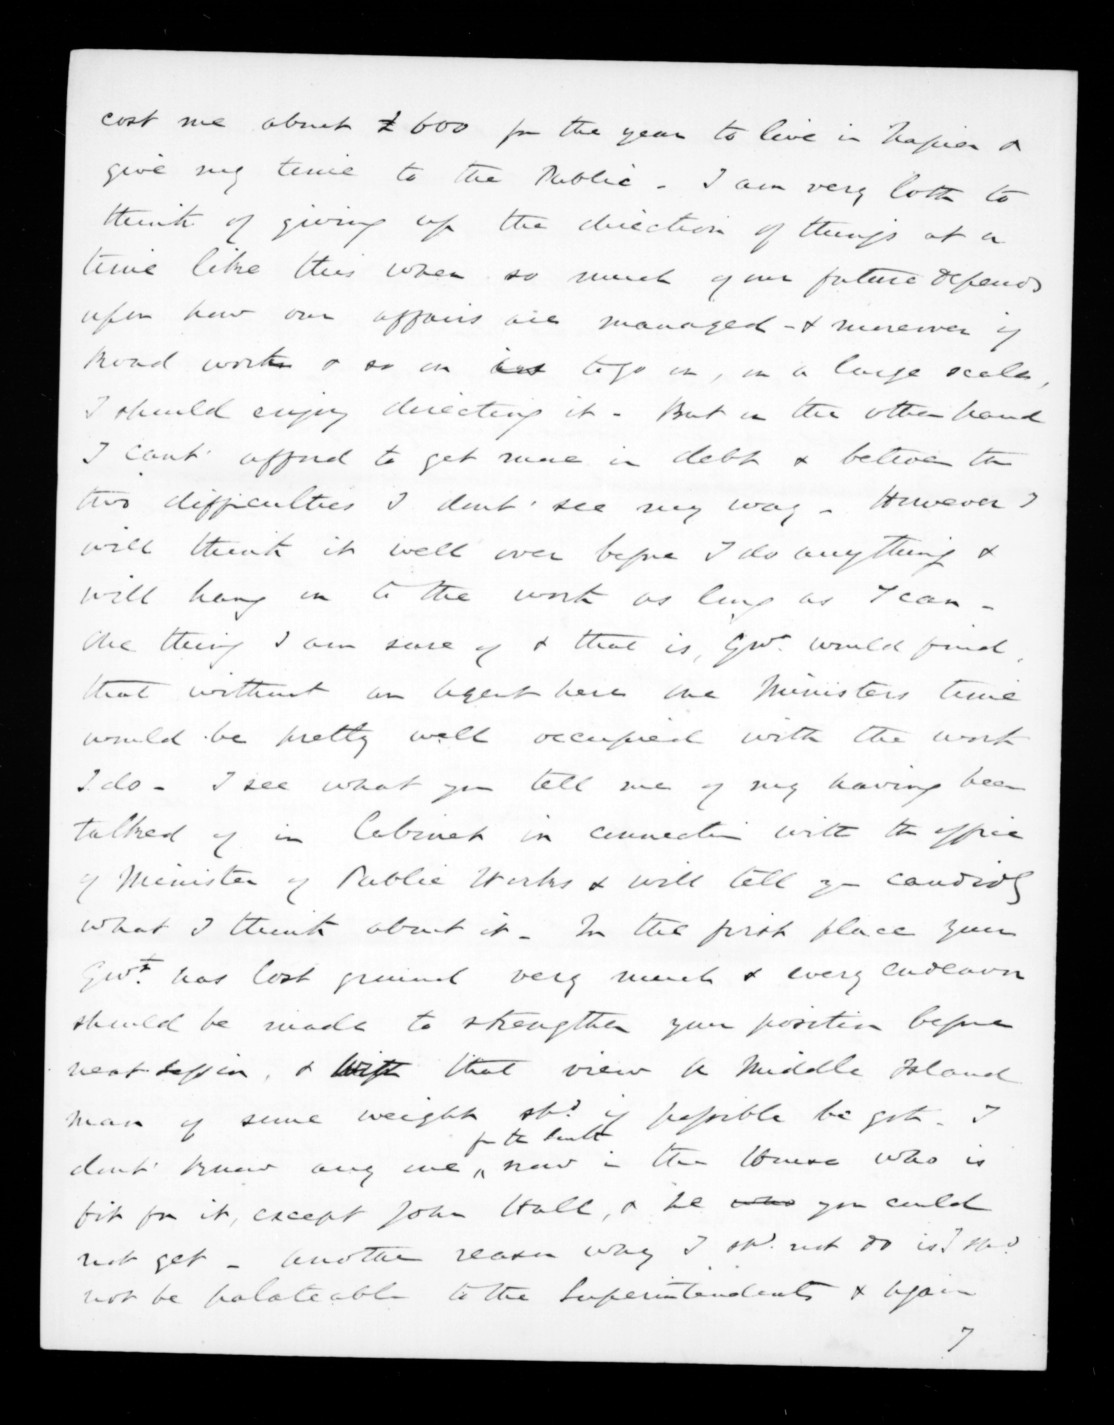 cost me about £600 for the year to live in Napier &
give my time to the Public - I am very loth to
think of giving up the direction of things at a
time like this when so much of our future depends
upon how our affairs are managed - & moreover if
Road works & so on to go on, on a large scale,
I should enjoy directing it - But on the other hand
I cant' afford to get more in debt & between the
two difficulties I dont' see my way - However I
will think it well over before I do anything &
will hang on to the work as long as I can -
One thing I am sure of & that is, Govt. would find,
that without an Agent here one Ministers time
would be pretty well occupied with the work
I do - I see what you tell me of my having been
talked of in Cabinet in connection with the office
of Minister of Public Works & will tell you candidly
what I think about it - In the first place your
Govt. has lost ground very much & every endeavor
should be made to strengthen your position before
next session, & with that view a Middle Island
man of some weight shd. if possible be got - I
dont' know any one for the South now in the House who is
fit for it, except John Hall, & he who you could
not get - Another reason why I shd. not do is I shd.
not be palateable to the Superintendents & again
7